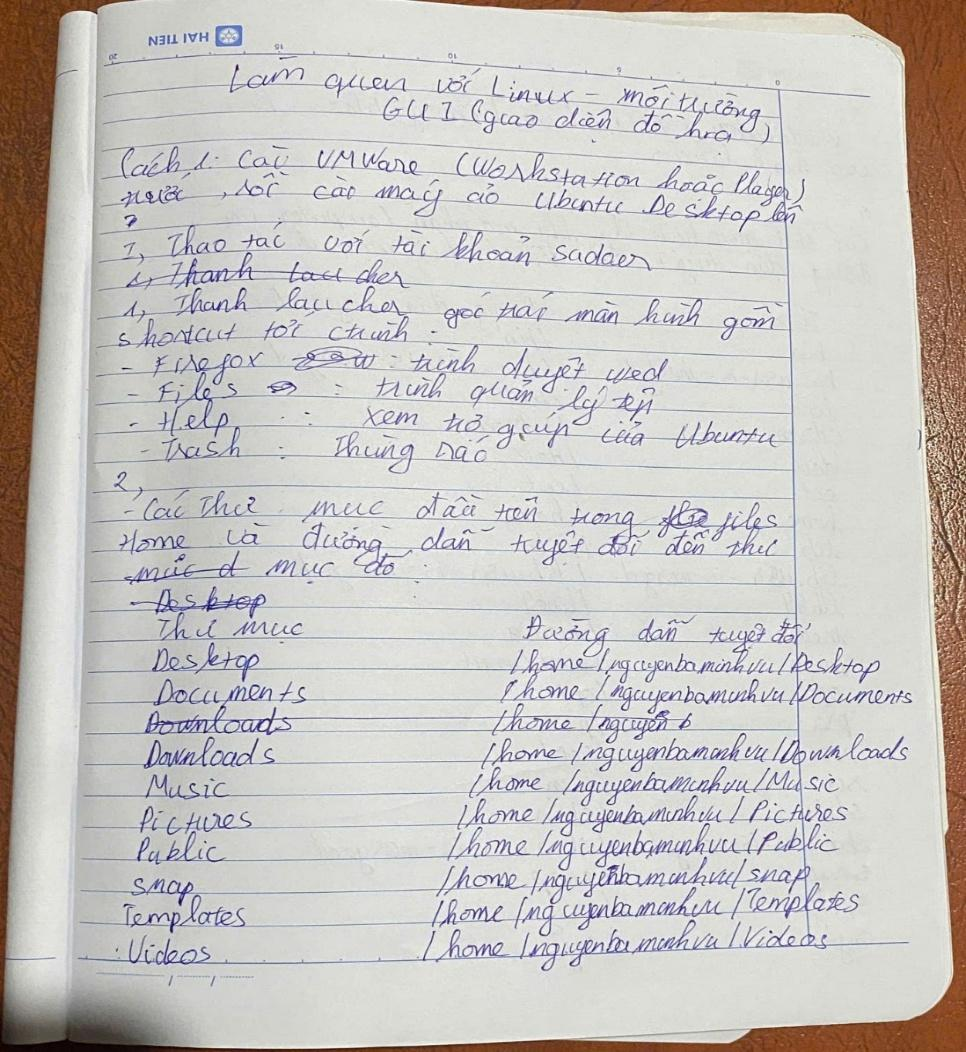 HẢI TIẾN
20 15 10 5 0
Làm quen với Linux - môi trường
GUI (giao diện đồ họa)
Cách 1: Cài VMWare (Workstation hoặc Player)
trước, rồi cài máy ảo Ubuntu Desktop lên
I, Thao tác với tài khoản sudaer
1, Thanh laucher
1, Thanh laucher góc trái màn hình gồm
shortcut tới chính :
- Firefox : trình duyệt wed
- Files : trình quản lý tệp
- Help : xem trợ giúp của Ubuntu
- Trash : Thùng rác
2,
- Các Thư mục đầu tiên trong files
Home và đường dẫn tuyệt đối đến thư
mục đ mục đó :
- Desktop
Thư mục Đường dẫn tuyệt đối
Desktop /home/nguyenbaminhvu/Desktop
Documents /home/nguyenbaminhvu/Documents
Downloads /home/nguyen b
Downloads /home/nguyenbaminhvu/Downloads
Music /home/nguyenbaminhvu/Music
Pictures /home/nguyenbaminhvu/Pictures
Public /home/nguyenbaminhvu/Public
snap /home/nguyenbaminhvu/snap
Templates /home/nguyenbaminhvu/Templates
Videos /home/nguyenbaminhvu/Videos